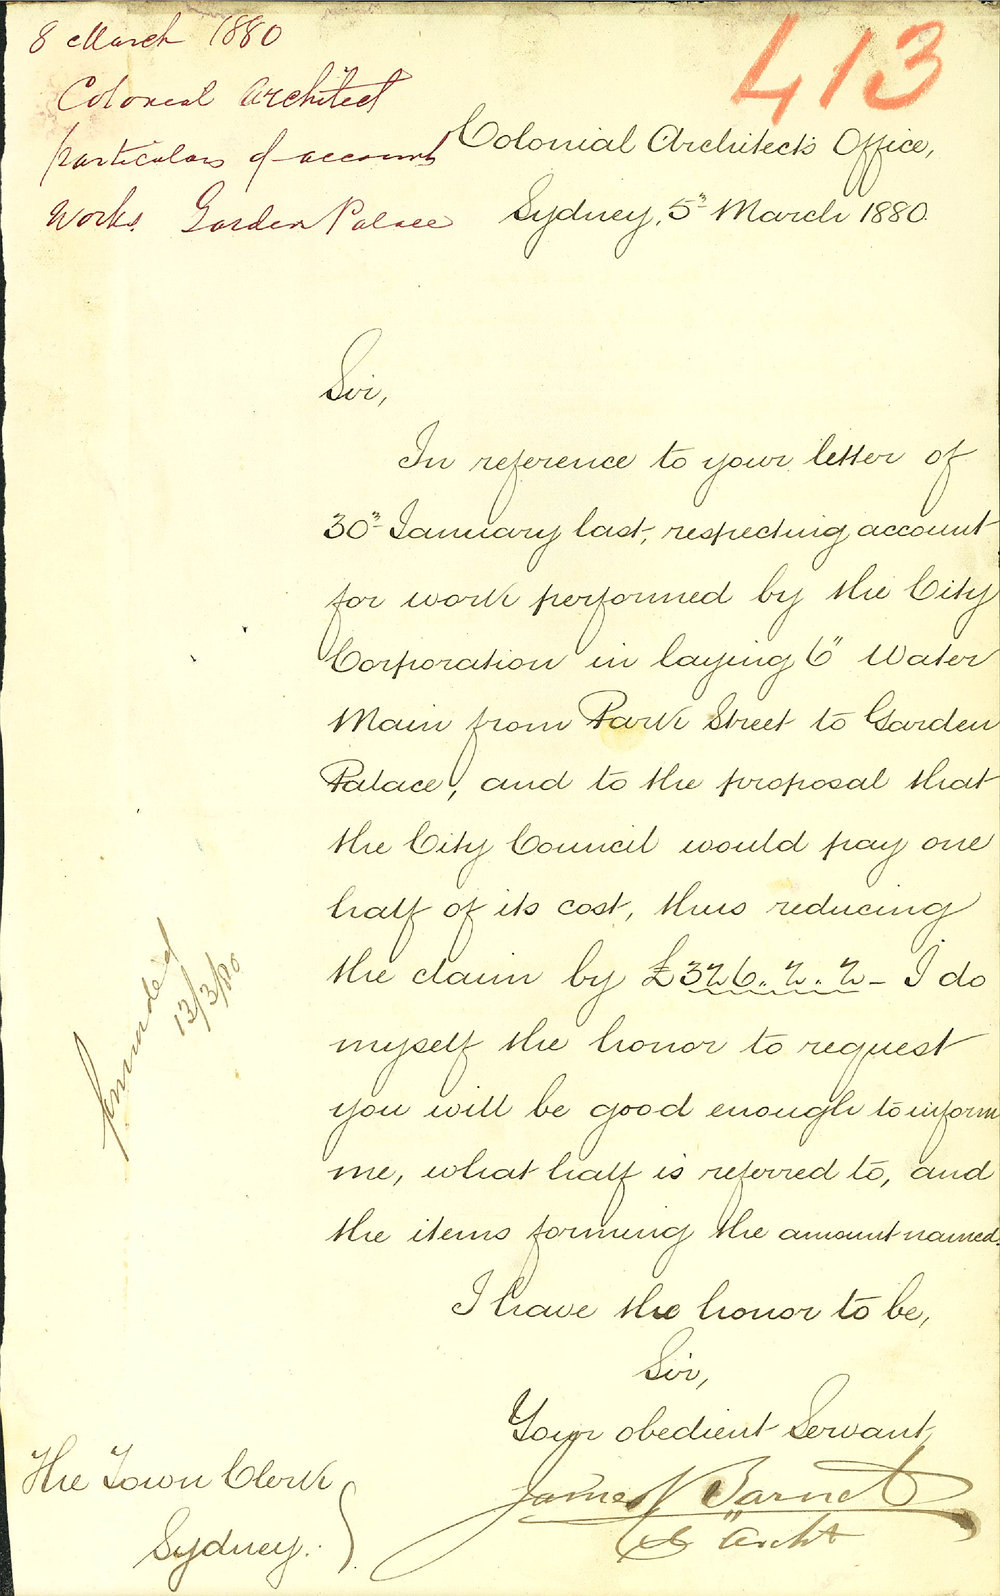 8 March 1880
Colonial Architect
particulars of account
Works. Garden Palace
413
Colonial Architect's Office,
Sydney, 5th March 1880.
Sir,
In reference to your letter of
30th January last, respecting account
for work performed by the City
Corporation in laying 6" Water
Main from Park Street to Garden
Palace, and to the proposal that
the City Council would pay one
half of its cost, thus reducing
the claim by £326. 2. 2 - I do
myself the honor to request
you will be good enough to inform
me, what half is referred to, and
the items forming the amount named.
I have the honor to be,
Sir,
Your obedient Servant,
James Barnet
Archt
The Town Clerk
Sydney.
13/3/80